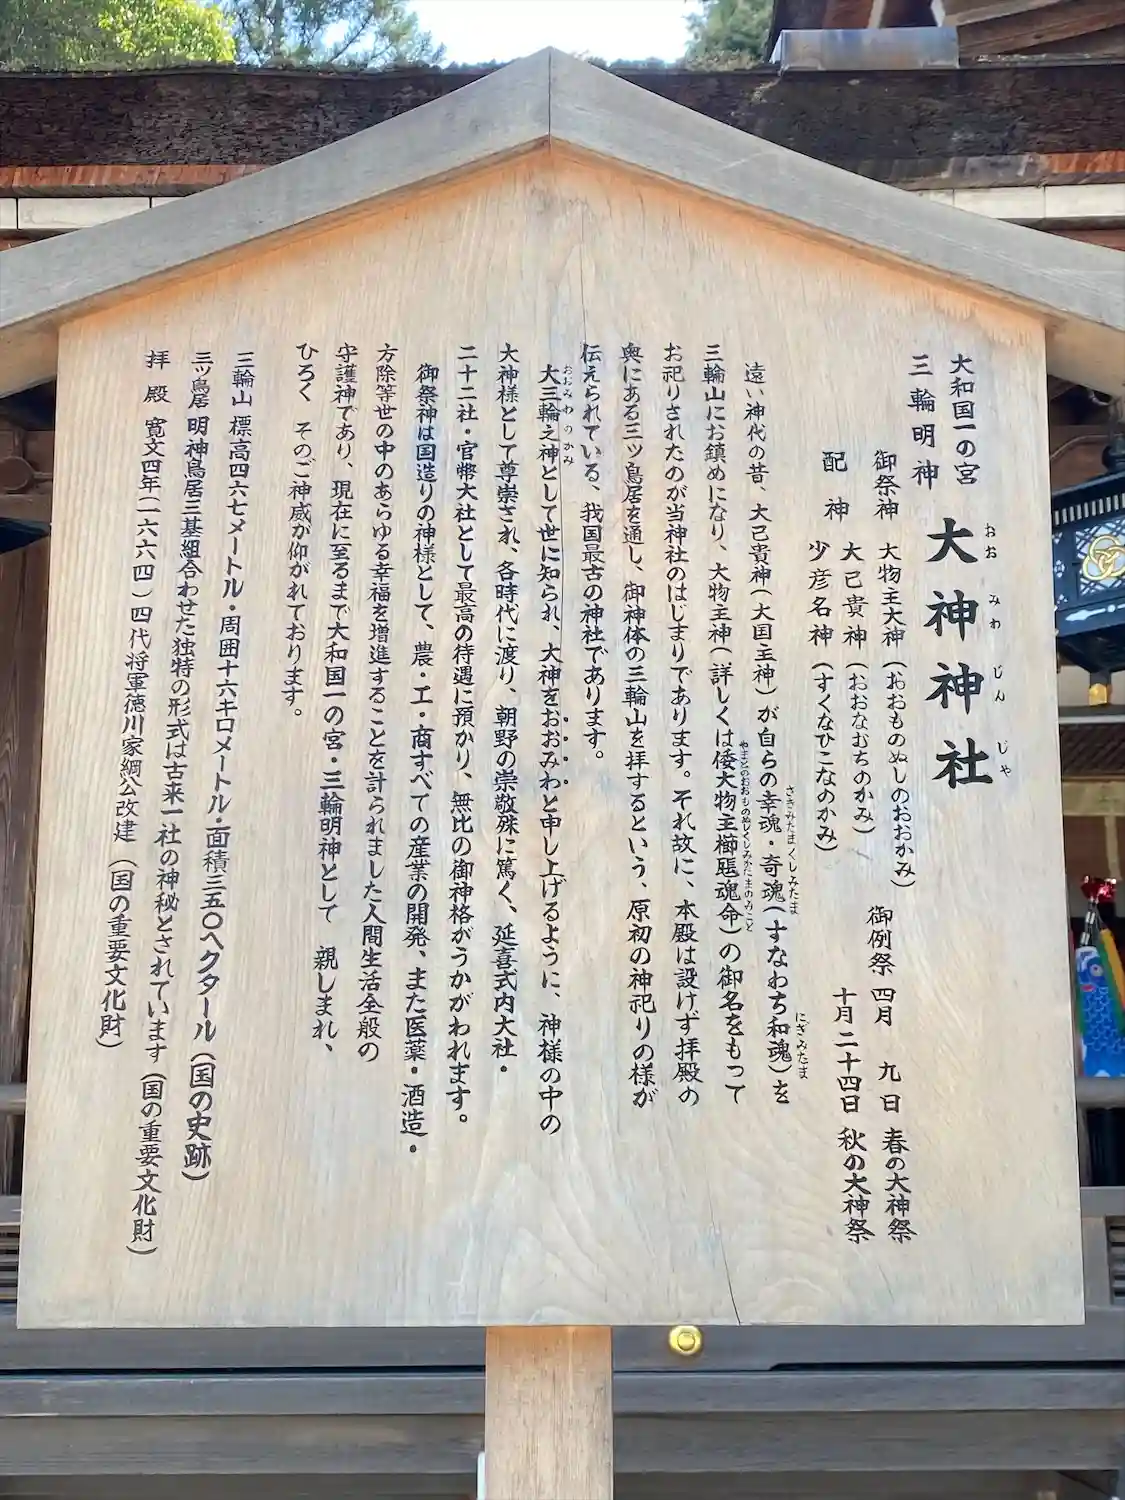 大和国一の宮
三輪明神
大神神社
おお みわ じん じゃ
御祭神 大物主大神(おおものぬしのおおかみ)
配神 大己貴神(おおなむちのかみ)
少彦名神(すくなひこなのかみ)
御例祭 四月 九日 春の大神祭
十月二十四日 秋の大神祭
遠い神代の昔、大己貴神(大国主神)が自らの幸魂・奇魂(すなわち和魂)を
さきみたまくしみたま
にぎみたま
三輪山にお鎮めになり、大物主神(詳しくは倭大物主櫛𤭖魂命)の御名をもって
やまとのおおものぬしくしみかたまのみこと
お祀りされたのが当神社のはじまりであります。それ故に、本殿は設けず拝殿の
奥にある三ツ鳥居を通し、御神体の三輪山を拝するという、原初の神祀りの様が
伝えられている、我国最古の神社であります。
大三輪之神として世に知られ、大神をおおみわと申し上げるように、神様の中の
おおみわのかみ
大神様として尊崇され、各時代に渡り、朝野の崇敬殊に篤く、延喜式内大社・
二十二社・官幣大社として最高の待遇に預かり、無比の御神格がうかがわれます。
御祭神は国造りの神様として、農・工・商すべての産業の開発、また医薬・酒造・
方除等世の中のあらゆる幸福を増進することを計られました人間生活全般の
守護神であり、現在に至るまで大和国一の宮・三輪明神として 親しまれ、
ひろく そのご神威が仰がれております。
三輪山 標高四六七メートル・周囲十六キロメートル・面積三五〇ヘクタール(国の史跡)
三ツ鳥居 明神鳥居三基組合わせた独特の形式は古来一社の神秘とされています(国の重要文化財)
拝殿 寛文四年(一六六四)四代将軍徳川家綱公改建(国の重要文化財)